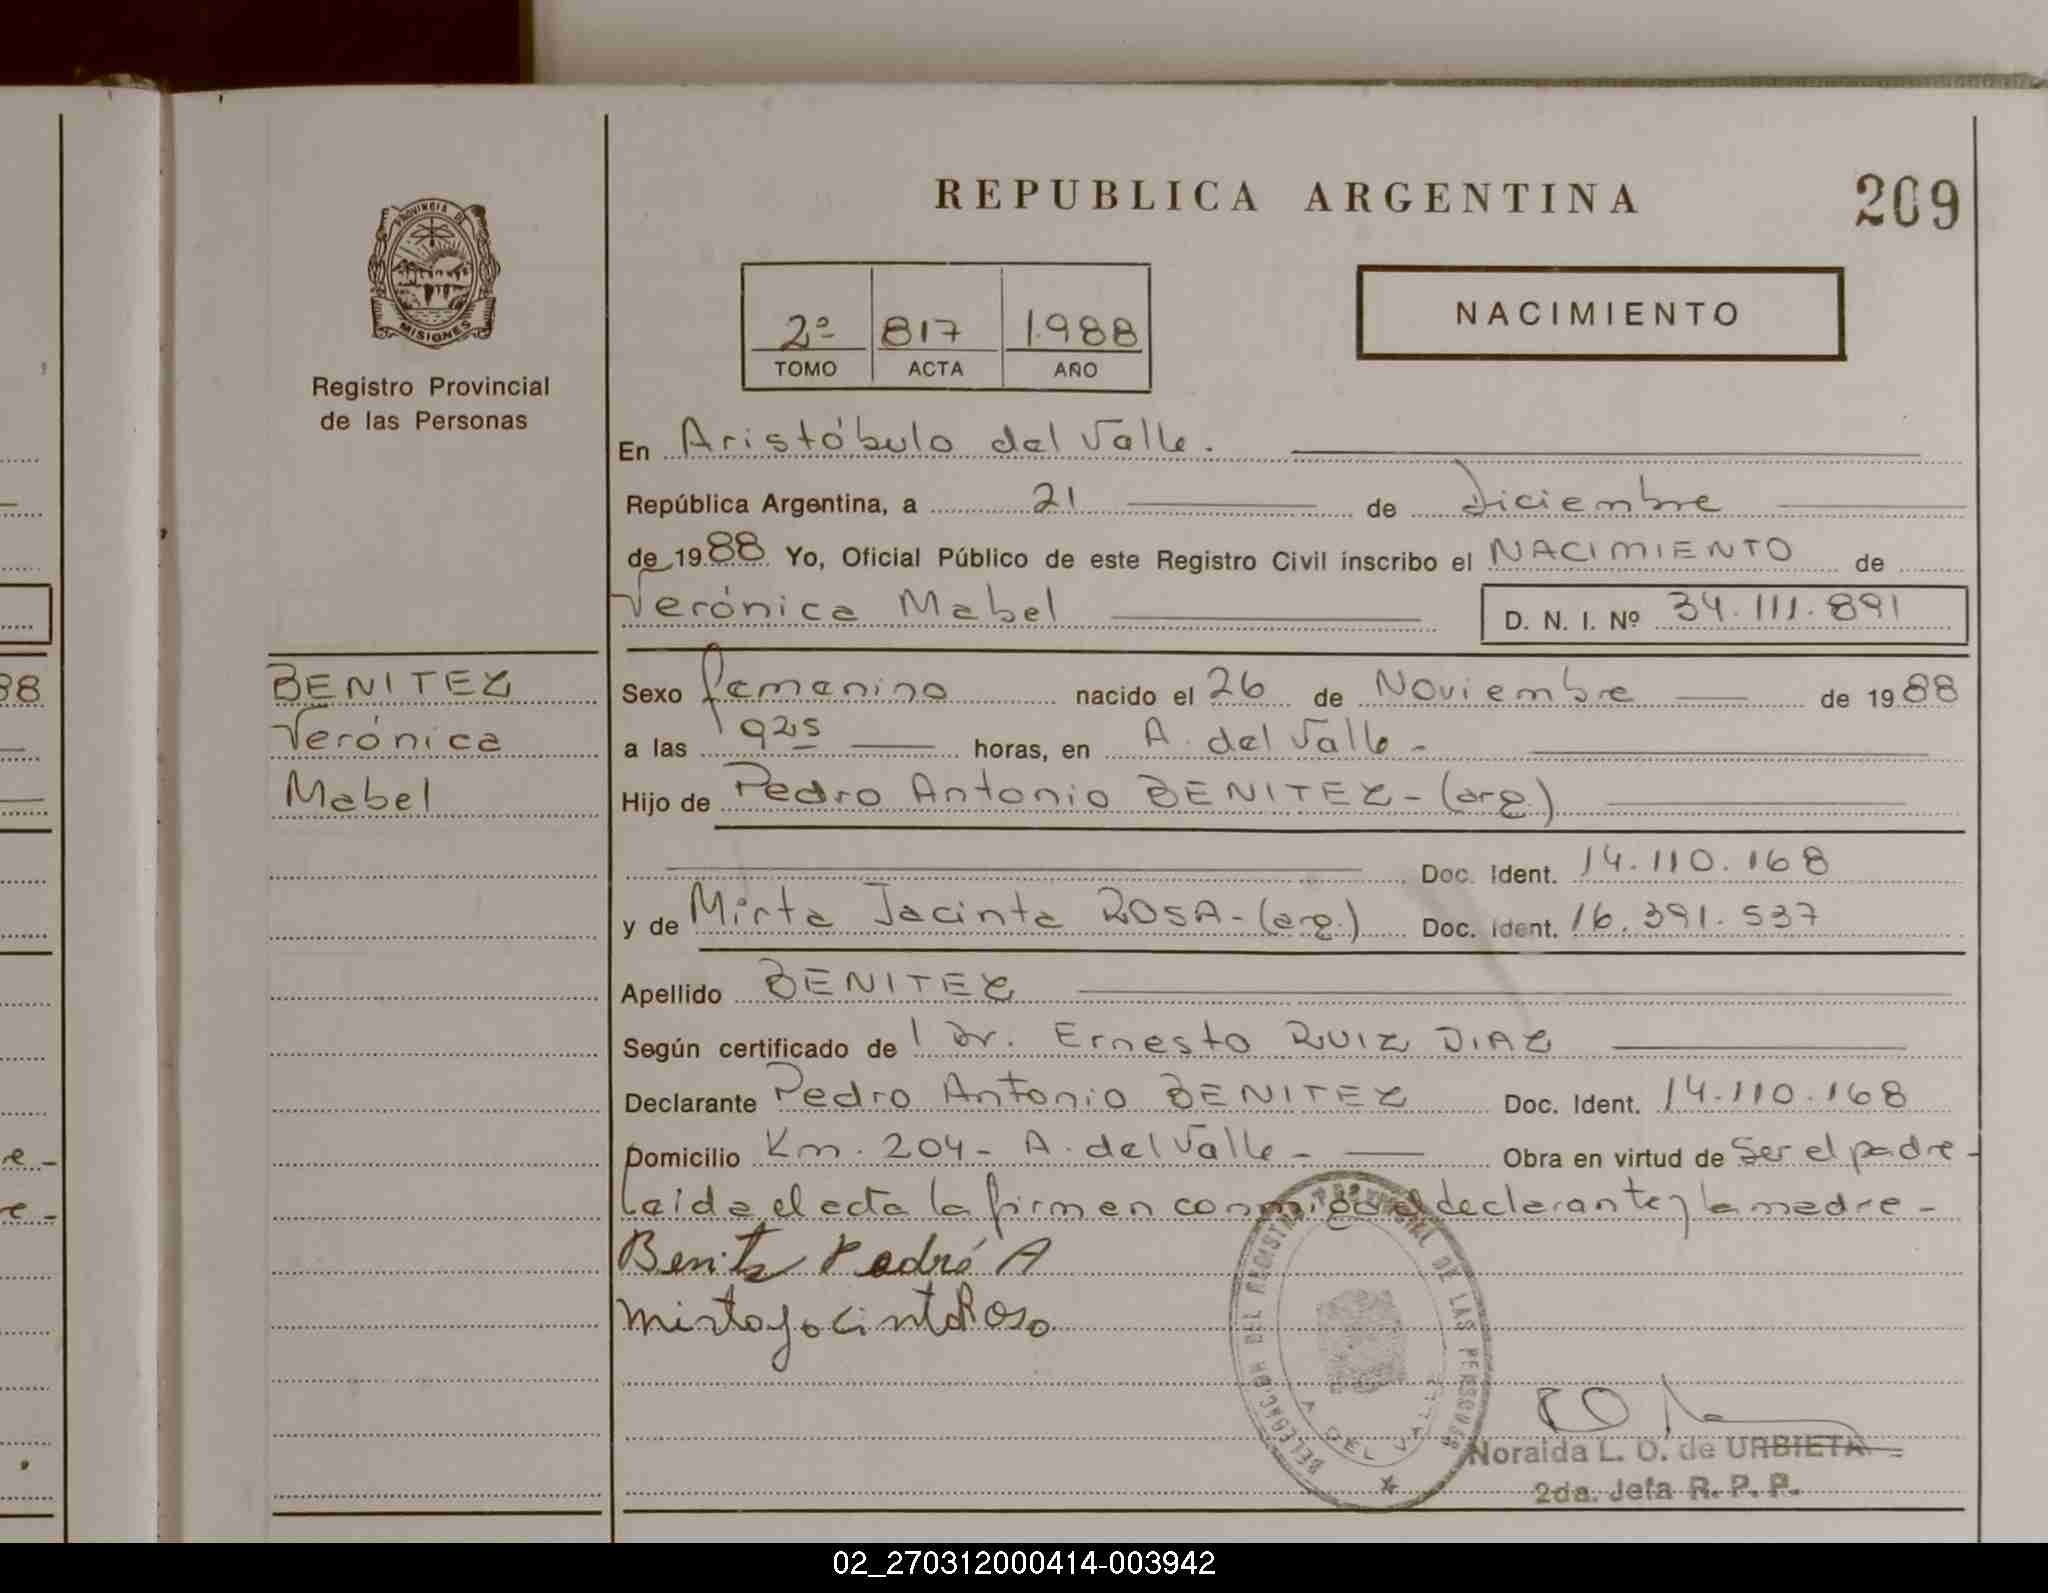 REPUBLICA ARGENTINA
209
PROVINCIA DE
MISIONES
Registro Provincial
de las Personas
2º 817 1.988
TOMO ACTA AÑO
NACIMIENTO
En Aristóbulo del Valle.
República Argentina, a 21 de diciembre
de 1988 Yo, Oficial Público de este Registro Civil inscribo el NACIMIENTO de
Verónica Mabel D. N. I. Nº 34.111.891
BENITEZ
Verónica
Mabel
88
Sexo femenino nacido el 26 de Noviembre de 1988
a las 925 horas, en A. del Valle -
Hijo de Pedro Antonio BENITEZ - (arg.)
Doc. Ident. 14.110.168
y de Mirta Jacinta ROSA - (arg.) Doc. Ident. 16.391.537
Apellido BENITEZ
Según certificado de Dr. Ernesto RUIZ DIAZ
Declarante Pedro Antonio BENITEZ Doc. Ident. 14.110.168
Domicilio Km. 204 - A. del Valle - Obra en virtud de Ser el padre -
Leida el acta la firman conmigo el declarante y la madre -
re -
re -
Benitez Pedro A
Mirta Jacinta Rosa
DELEGACION DEL REGISTRO PROVINCIAL DE LAS PERSONAS
A DEL VALLE
Noraida L. O. de URBIETA
2da. Jefa R. P. P.
02_270312000414-003942